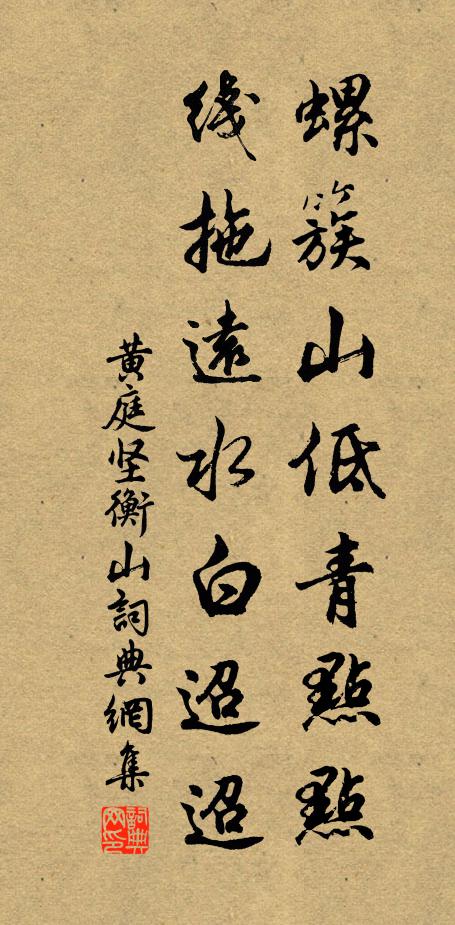 螺簇山低青點點
綫拖遠水白迢迢
黄庭坚衡山詞典網集
詞典網印